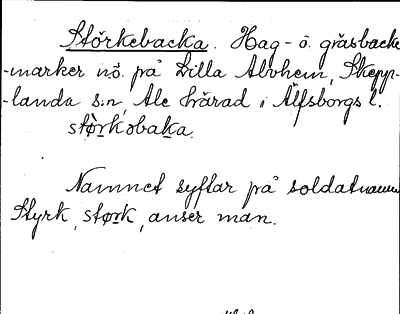 Störkebacka. Hag- o. gräsbacke
-marker nö. på Lilla Alvhem, Skepp-
-landa s:n, Ale härad i Älfsborgs l.
størkobaka.
Namnet syftar på soldatnamn
Styrk, størk, anser man.